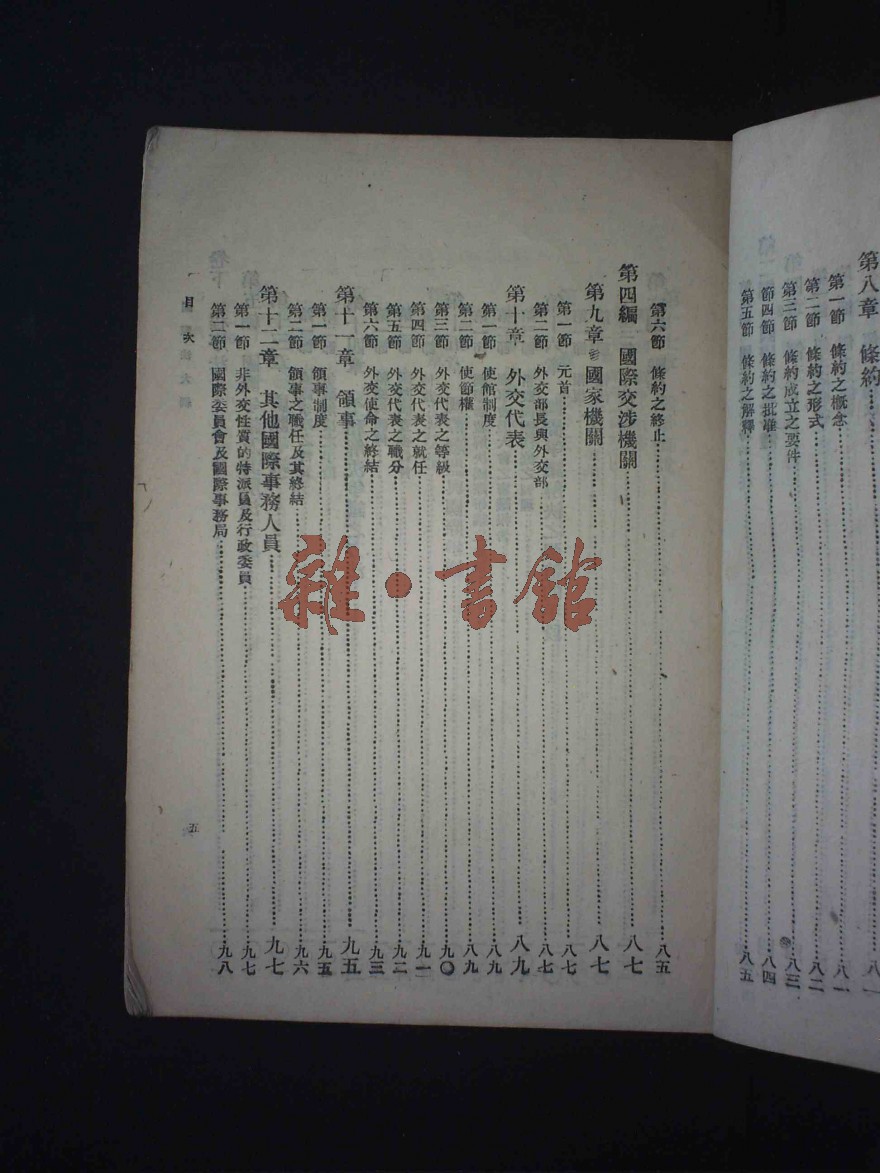 第八章 條約……八一
第一節 條約之概念……八一
第二節 條約之形式……八二
第三節 條約成立之要件……八三
節四節 條約之批准……八四
第五節 條約之解釋……八五
第六節 條約之終止……八五
第四編 國際交涉機關……八七
第九章 國家機關……八七
第一節 元首……八七
第二節 外交部長與外交部……八七
第十章 外交代表……八九
第一節 使館制度……八九
第二節 使節權……八九
第三節 外交代表之等級……九〇
第四節 外交代表之就任……九一
第五節 外交代表之職分……九二
第六節 外交使命之終結……九三
第十一章 領事……九五
第一節 領事制度……九五
第二節 領事之職任及其終結……九六
第十二章 其他國際事務人員……九七
第一節 非外交性質的特派員及行政委員……九七
第二節 國際委員會及國際事務局……九八
目次
五
雜·書館